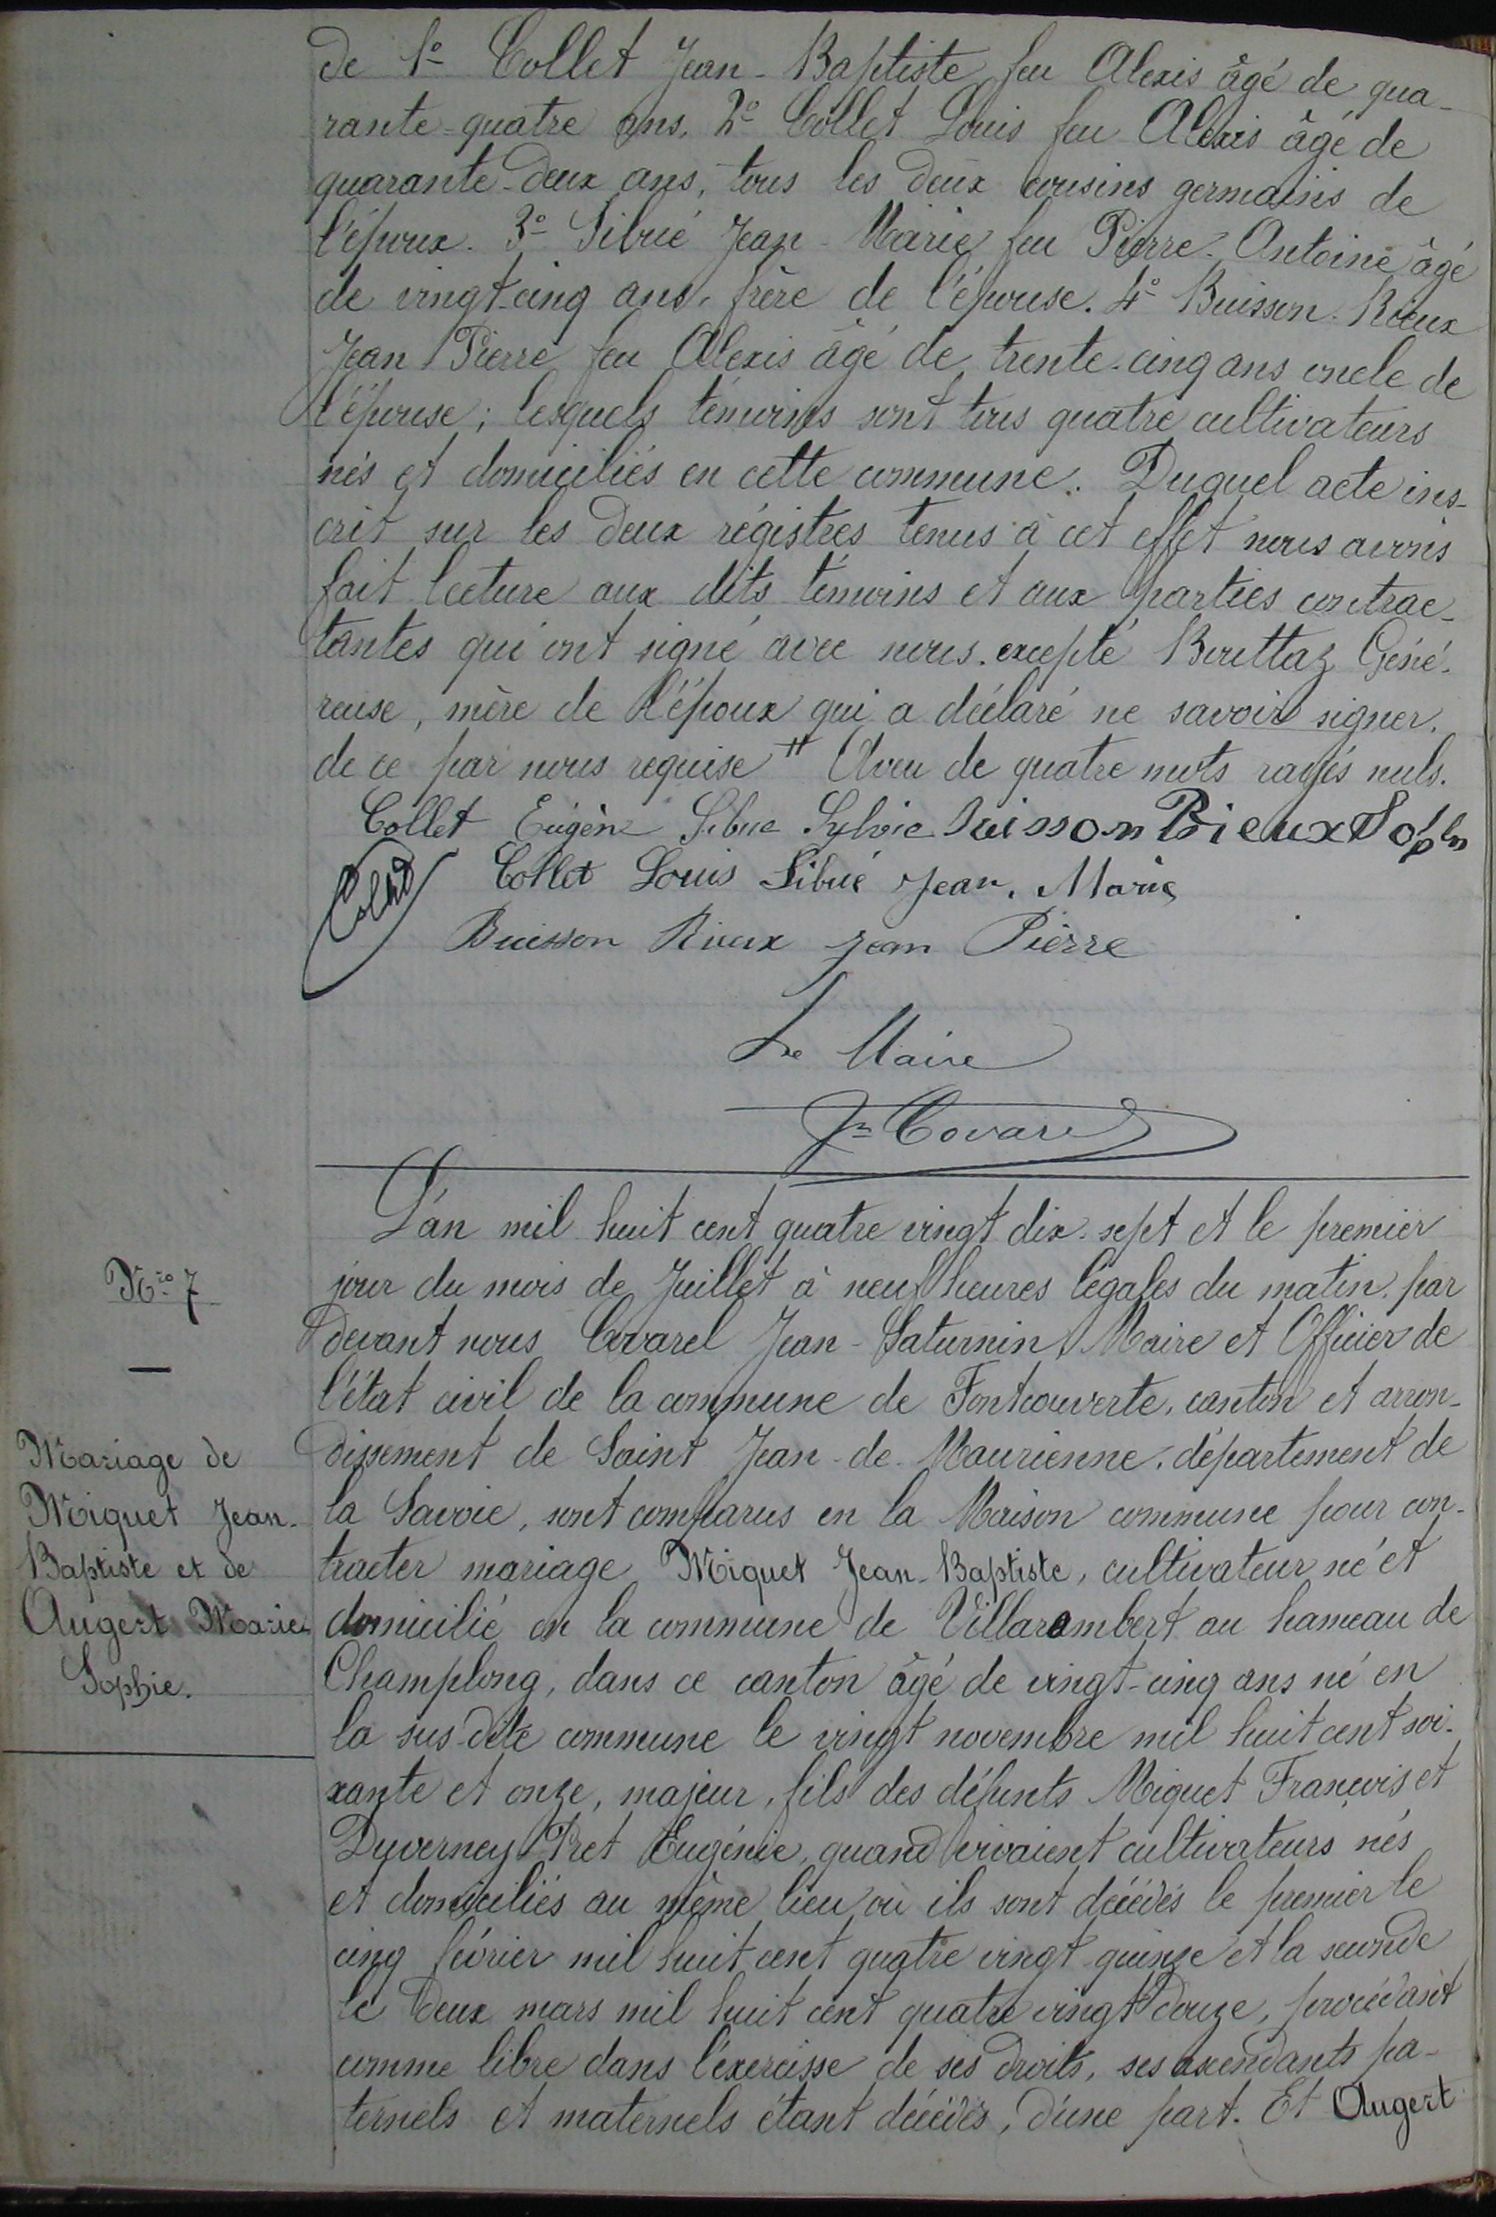 de 1° Collet Jean-Baptiste feu Alexis âgé de qua-
rante-quatre ans. 2° Collet Louis feu Alexis âgé de
quarante-deux ans, tous les deux cousins germains de
l'époux. 3° Sibué Jean-Marie feu Pierre-Antoine âgé
de vingt-cinq ans, frère de l'épouse. 4° Buisson-Rieux
Jean Pierre feu Alexis âgé de trente-cinq ans oncle de
l'épouse; lesquels témoins sont tous quatre cultivateurs
nés et domiciliés en cette commune. Duquel acte ins-
crit sur les deux régistres tenus à cet effet nous avons
fait lecture aux dits témoins et aux parties contrac-
tantes qui ont signé avec nous. excepté Bouttaz Géné-
reuse, mère de l'époux qui a déclaré ne savoir signer.
de ce par nous requise # Aveu de quatre mots rayés nuls.
Collet Eugène Sibué Sylvie Buisson Rieux Soph
Collet Collet Louis Sibué Jean. Marie
Buisson Rieux Jean Pierre
Le Maire
Jn Covarel
L'an mil huit cent quatre vingt dix-sept et le premier
N.ro 7
jour du mois de Juillet à neuf heures légales du matin. par
devant nous Covarel Jean-Saturnin, Maire et Officier de
l'état civil de la commune de Fontcouverte, canton et arron-
dissement de Saint Jean-de-Maurienne, département de
la Savoie, sont comparus en la Maison commune pour con-
tracter mariage Miquet Jean-Baptiste, cultivateur né et
domicilié en la commune de Villarembert au hameau de
Champlong, dans ce canton âgé de vingt-cinq ans né en
la sus-dite commune le vingt novembre mil huit cent soi-
xante et onze, majeur, fils des défunts Miquet François et
Duverney Pret Eugénie, quand vivaient cultivateurs nés
et domiciliés au même lieu où ils sont décédés le premier le
cinq février mil huit cent quatre vingt quinze et la seconde
le deux mars mil huit cent quatre vingt douze, procédant
comme libre dans l'exercisse de ses droits, ses ascendants pa-
ternels et maternels étant décédés, d'une part. Et Augert
Mariage de
Miquet Jean-
Baptiste et de
Augert Marie
Sophie.